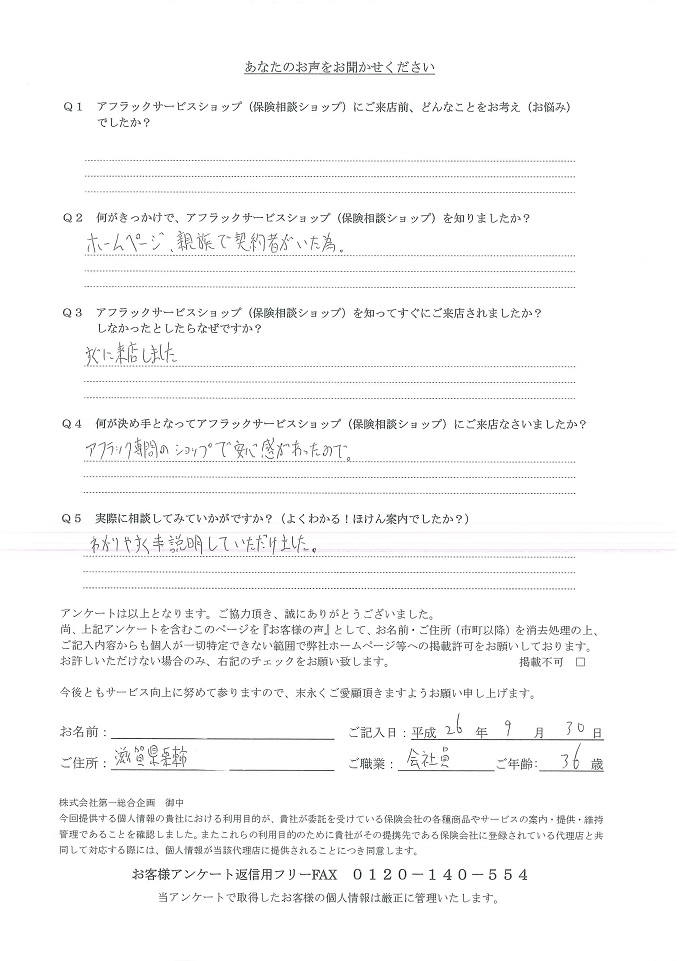 あなたのお声をお聞かせください
Q1 アフラックサービスショップ（保険相談ショップ）にご来店前、どんなことをお考え（お悩み）
でしたか？
Q2 何がきっかけで、アフラックサービスショップ（保険相談ショップ）を知りましたか？
ホームページ、親族で契約者がいた為。
Q3 アフラックサービスショップ（保険相談ショップ）を知ってすぐにご来店されましたか？
しなかったとしたらなぜですか？
すぐに来店しました
Q4 何が決め手となってアフラックサービスショップ（保険相談ショップ）にご来店なさいましたか？
アフラック専門のショップで安心感があったので。
Q5 実際に相談してみていかがですか？（よくわかる！ほけん案内でしたか？）
わかりやすく説明していただけました。
アンケートは以上となります。ご協力頂き、誠にありがとうございました。
尚、上記アンケートを含むこのページを『お客様の声』として、お名前・ご住所（市町以降）を消去処理の上、
ご記入内容からも個人が一切特定できない範囲で弊社ホームページ等への掲載許可をお願いしております。
お許しいただけない場合のみ、右記のチェックをお願い致します。 掲載不可 □
今後ともサービス向上に努めて参りますので、末永くご愛顧頂きますようお願い申し上げます。
お名前： ご記入日：平成 26 年 9 月 30 日
ご住所：滋賀県栗東市 ご職業：会社員 ご年齢：36 歳
株式会社第一総合企画 御中
今回提供する個人情報の貴社における利用目的が、貴社が委託を受けている保険会社の各種商品やサービスの案内・提供・維持
管理であることを確認しました。またこれらの利用目的のために貴社がその提携先である保険会社に登録されている代理店と共
同して対応する際には、個人情報が当該代理店に提供されることにつき同意します。
お客様アンケート返信用フリーFAX 0120－140－554
当アンケートで取得したお客様の個人情報は厳正に管理いたします。